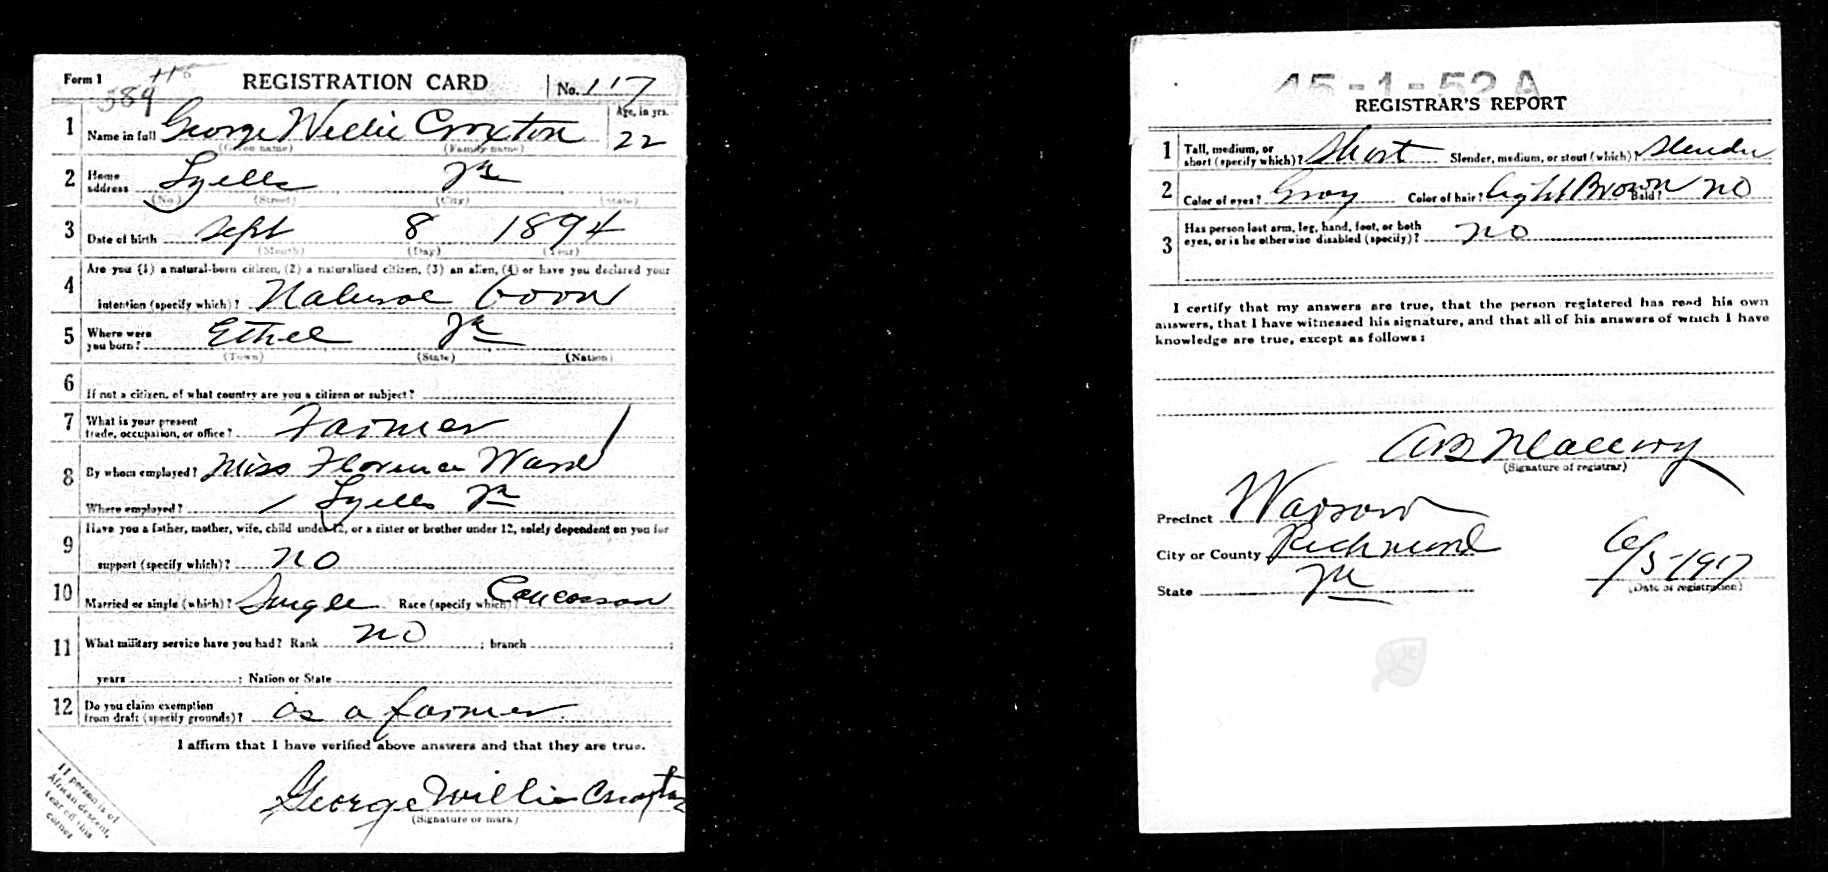 Form 1 REGISTRATION CARD No. 117
589 115
1 Name in full George Willie Croxton Age, in yrs. 22
(Given name) (Family name)
2 Home address Lyells Va
(No.) (Street) (City) (State)
3 Date of birth Sept 8 1894
(Month) (Day) (Year)
4 Are you (1) a natural-born citizen, (2) a naturalized citizen, (3) an alien, (4) or have you declared your
intention (specify which)? Natural Born
5 Where were you born? Ethel Va
(Town) (State) (Nation)
6 If not a citizen, of what country are you a citizen or subject?
7 What is your present trade, occupation, or office? Farmer
8 By whom employed? Miss Florence Ward
Where employed? Lyells Va
9 Have you a father, mother, wife, child under 12, or a sister or brother under 12, solely dependent on you for
support (specify which)? no
10 Married or single (which)? Single Race (specify which)? Caucasian
11 What military service have you had? Rank no ; branch ;
years ; Nation or State
12 Do you claim exemption from draft (specify grounds)? as a farmer
I affirm that I have verified above answers and that they are true.
George Willie Croxton
(Signature or mark)
If person is of
African descent,
tear off this
corner
45-1-52 A
REGISTRAR'S REPORT
1 Tall, medium, or short (specify which)? Short Slender, medium, or stout (which)? Slender
2 Color of eyes? Gray Color of hair? Light Brown Bald? no
3 Has person lost arm, leg, hand, foot, or both
eyes, or is he otherwise disabled (specify)? no
I certify that my answers are true, that the person registered has read his own
answers, that I have witnessed his signature, and that all of his answers of which I have
knowledge are true, except as follows:
(Signature of registrar)
Precinct Warsaw
City or County Richmond 6/5-1917
State Va (Date of registration)